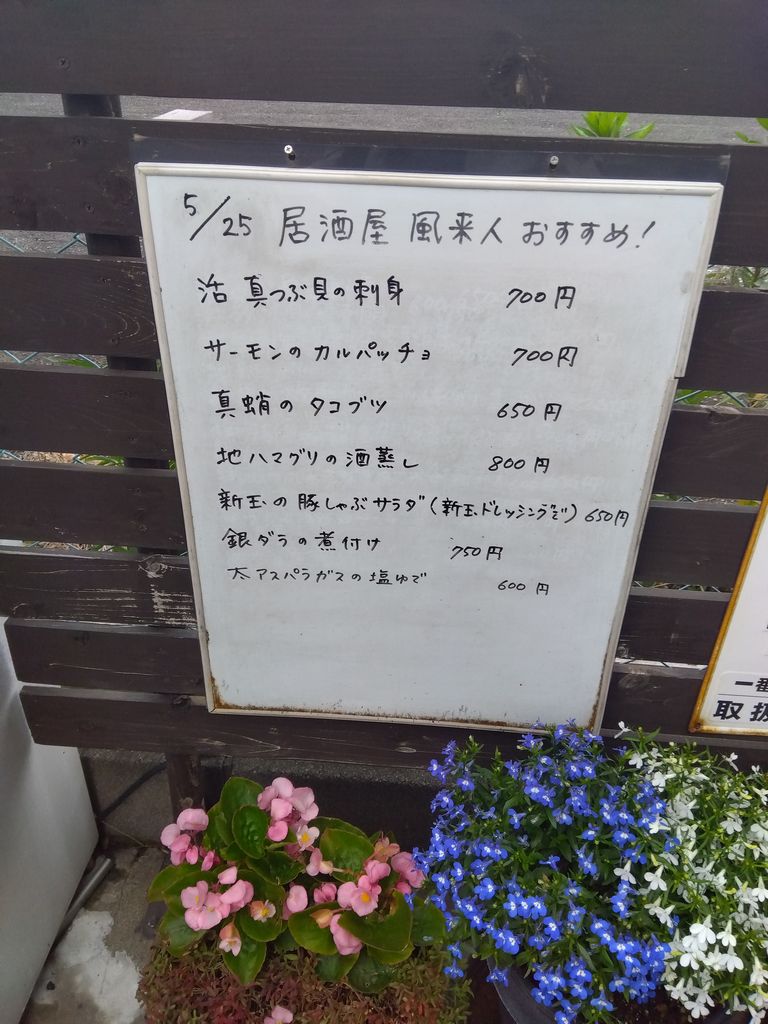 5/25 居酒屋 風来人 おすすめ!
活 真つぶ貝の刺身 700円
サーモンの カルパッチョ 700円
真蛸の タコブツ 650円
地ハマグリの酒蒸し 800円
新玉の 豚しゃぶサラダ(新玉ドレッシングで) 650円
銀ダラの煮付け 750円
太アスパラガスの塩ゆで 600円
一番
取扱